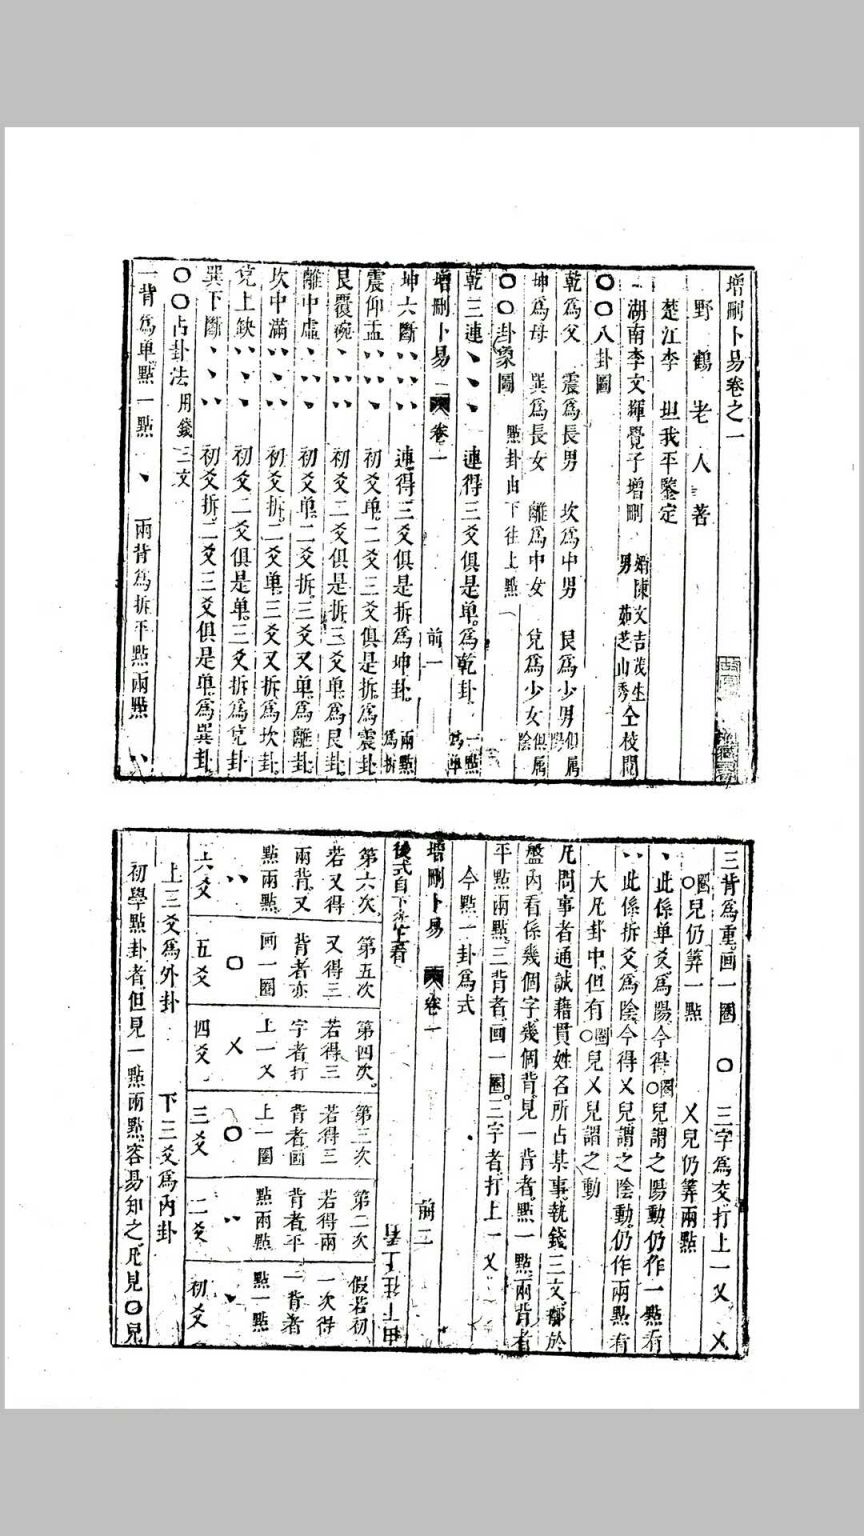 增刪卜易卷之一
野鶴老人著
楚江李 坦我平鑒定
湖南李文輝覺子增刪 婿陳文吉茂生 男 茹芝山秀 仝校閱
〇〇八卦圖
乾為父 震為長男 坎為中男 艮為少男 俱屬陽
坤為母 巽為長女 離為中女 兌為少女 俱屬陰
〇〇卦象圖 點卦由下往上點
乾三連 、、、 連得三爻俱是单。為乾卦 一點為单
增刪卜易 卷一 前一
坤六斷 〃〃〃 連得三爻俱是拆為坤卦。 兩點為拆
震仰盂 〃〃、 初爻单。二爻三爻俱是拆。為震卦
艮覆碗 、〃〃 初爻二爻俱是拆。三爻单。為艮卦
離中虛 、〃、 初爻单。二爻拆。三爻又单。為離卦
坎中滿 〃、〃 初爻拆。二爻单。三爻又拆。為坎卦
兌上缺 〃、、 初爻二爻俱是单。三爻拆。為兌卦
巽下斷 、、〃 初爻拆。二爻三爻俱是单。為巽卦
〇〇占卦法 用錢三文
一背為单。點一點 、 兩背為拆。平點兩點 〃
三背為重。画一圈 〇 三字為交。打上一乂 乂
〇圈兒仍算一點 乂兒仍算兩點
、此係单爻為陽。今得〇圈兒。謂之陽動。仍作一點看
〃此係拆爻為陰。今得乂兒。謂之陰動。仍作兩點看
大凡卦中。但有〇圈兒乂兒謂之動
凡問事者。通誠籍貫姓名所占某事。執錢三文。擲於
盤內看係幾個字。幾個背。見一背者。點一點。兩背者
平點兩點。三背者。画一圈。三字者。打上一乂
今點一卦為式
增刪卜易 卷一 前二
後式自下往上看 由下往上看
第六次 第五次 第四次。 第三次 第二次 假若初
若又得 又得三 若得三 若得三 若得兩 一次得
兩背。又 背者亦 字者打 背者画 背者。平 一背者
點兩點 画一圈 上一乂 上一圈 點兩點 點一點
〃 〇 乂 〇 〃 、
六爻 五爻 四爻 三爻 二爻 初爻
上三爻為外卦 下三爻為內卦
初學點卦者。但見一點兩點。容易知之。凡見〇兒